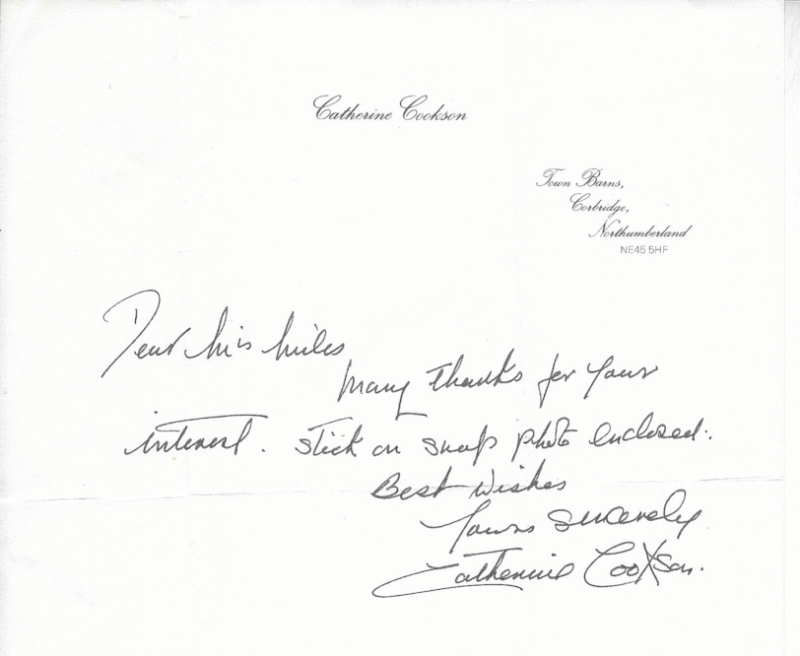 Catherine Cookson
Town Barns,
Corbridge,
Northumberland
NE45 5HF
Dear Miss Miles
Many thanks for your
interest. Stick on snap photo enclosed.
Best Wishes
Yours Sincerely
Catherine Cookson.